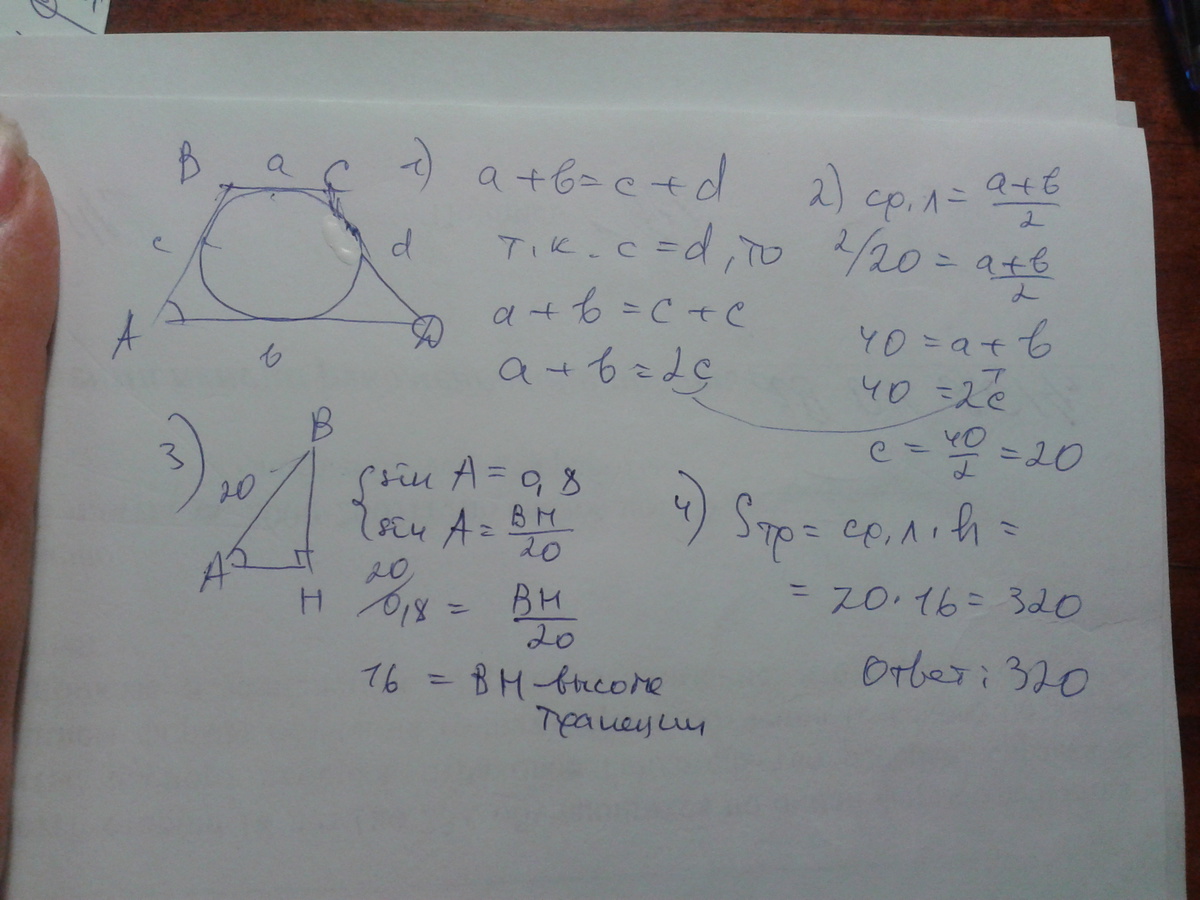 B a C
c d
A D
в
1) a + в = c + d
т.к. c = d, то
a + в = c + c
a + в = 2c
2) ср.л = a+в/2
2/20 = a+в/2
40 = a + в
40 = 2c
c = 40/2 = 20
3) B
20
A
H
{sin A = 0,8
sin A = BH/20
20/0,8 = BH/20
16 = BH - высота
трапеции
4) Sтр = ср.л. h =
= 20 . 16 = 320
Ответ: 320